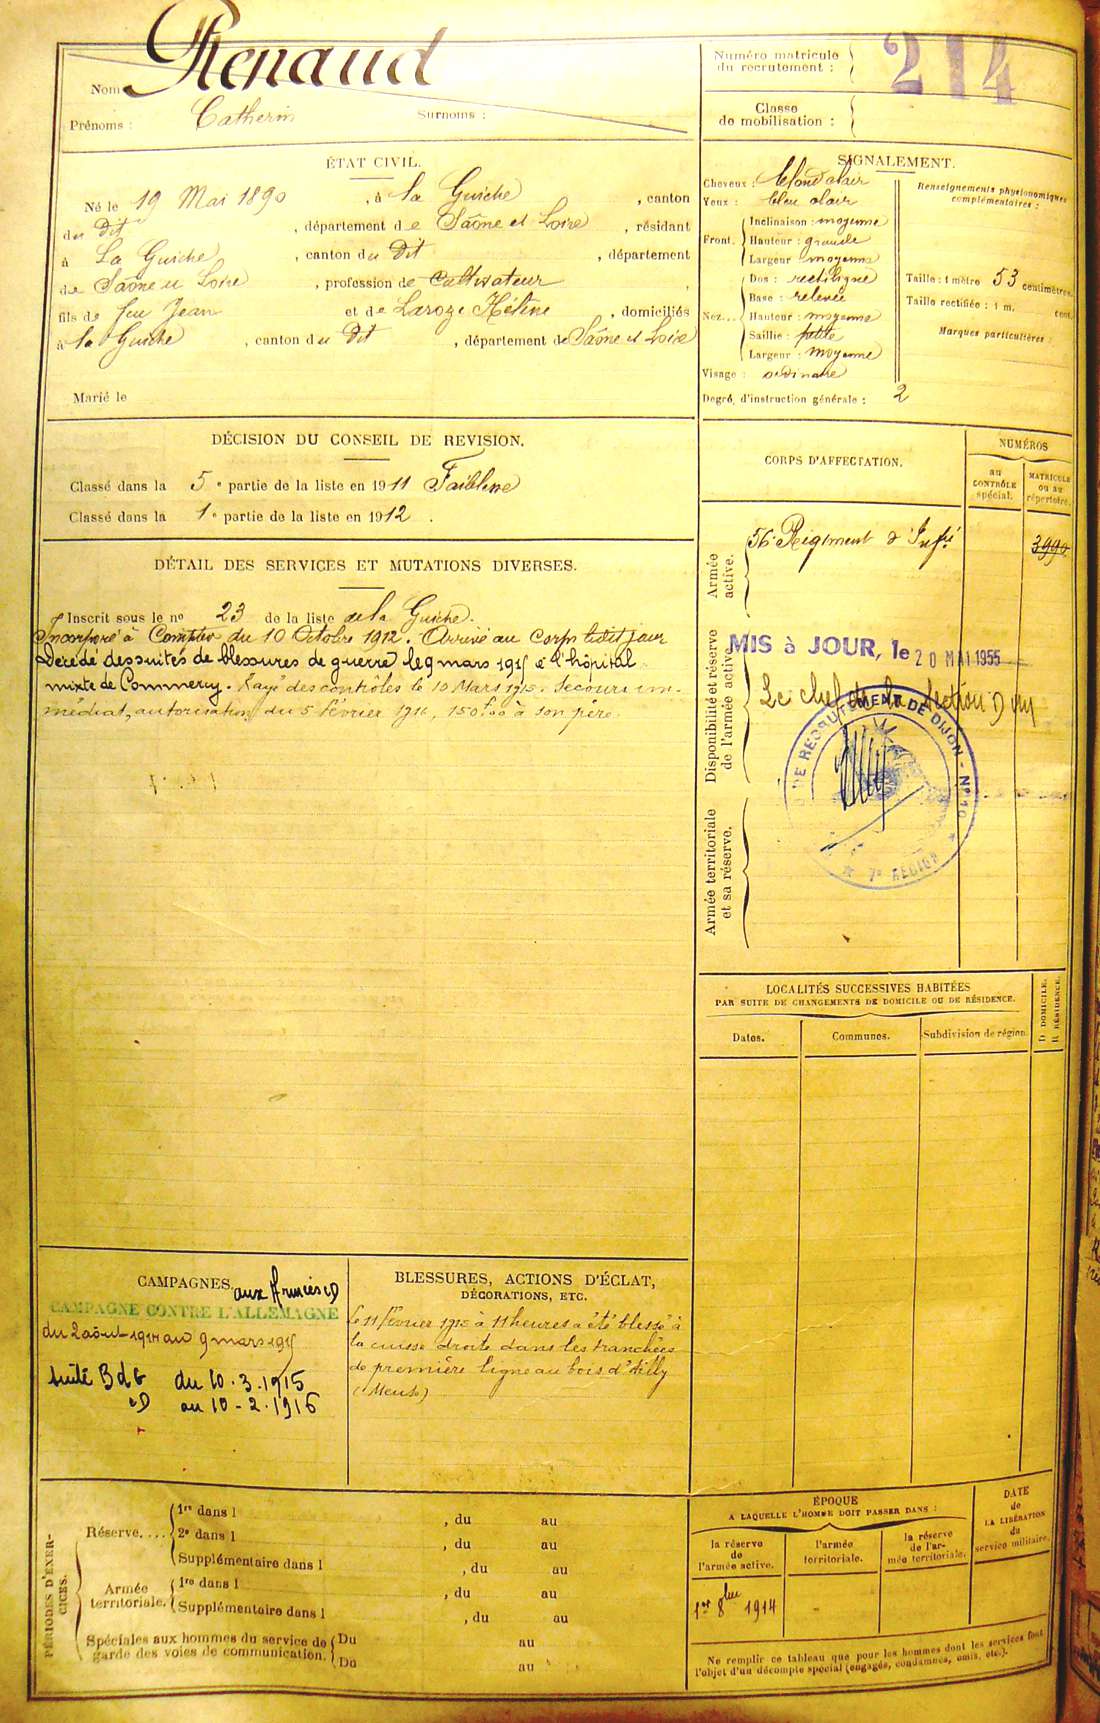 Nom Renaud
Prénoms : Catherin Surnoms :
Numéro matricule du recrutement : 214
Classe de mobilisation :
ÉTAT CIVIL.
Né le 19 Mai 1890, à La Guiche, canton
du Dit, département de Saône et Loire, résidant
à La Guiche, canton du Dit, département
de Saône et Loire, profession de Cultivateur
fils de feu Jean et de Laroze Hélène, domiciliés
à La Guiche, canton du Dit, département de Saône et Loire
Marié le
SIGNALEMENT.
Cheveux : blond clair
Yeux : bleu clair
Front. Inclinaison : moyenne
Hauteur : grande
Largeur : moyenne
Nez... Dos : rectiligne
Base : relevée
Hauteur : moyenne
Saillie : petite
Largeur : moyenne
Visage : ordinaire
Degré d'instruction générale : 2
Renseignements physionomiques complémentaires :
Taille : 1 mètre 53 centimètres.
Taille rectifiée : 1 m. cent.
Marques particulières :
DÉCISION DU CONSEIL DE REVISION.
Classé dans la 5e partie de la liste en 1911 Faiblesse
Classé dans la 1e partie de la liste en 1912.
DÉTAIL DES SERVICES ET MUTATIONS DIVERSES.
Inscrit sous le no 23 de la liste de La Guiche.
Incorporé à Compter du 10 Octobre 1912. Arrivé au Corps ledit jour
Décédé des suites de blessures de guerre le 9 mars 1915 à l'hôpital
mixte de Commercy. Rayé des contrôles le 10 Mars 1915. Secours im-
médiat, autorisation du 5 février 1916, 150f00 à son père.
CORPS D'AFFECTATION.
NUMÉROS
au CONTRÔLE spécial.
MATRICULE ou au répertoire.
Armée active.
56e Régiment d'Infie
3990
Disponibilité et réserve de l'armée active.
MIS à JOUR, le 20 MAI 1955
Le chef de la Section
DE RECRUTEMENT DE DIJON - No 10
7e RÉGION
Armée territoriale et sa réserve.
LOCALITÉS SUCCESSIVES HABITÉES
PAR SUITE DE CHANGEMENTS DE DOMICILE OU DE RÉSIDENCE.
Dates. Communes. Subdivision de région.
D DOMICILE.
R RÉSIDENCE.
CAMPAGNES. aux Armées CD
CAMPAGNE CONTRE L'ALLEMAGNE
du 2 août 1914 au 9 mars 1915
du 10.3.1915
CD au 10-2.1916
BLESSURES, ACTIONS D'ÉCLAT,
DÉCORATIONS, ETC.
Le 11 février 1915 à 11 heures a été blessé à
la cuisse droite dans les tranchées
de première ligne au bois d'Ailly
(Meuse)
PÉRIODES D'EXERCICES.
Réserve.... 1re dans l , du au
2e dans l , du au
Supplémentaire dans l , du au
Armée territoriale. 1re dans l , du au
Supplémentaire dans l , du au
Spéciales aux hommes du service de garde des voies de communication. Du au
Du au
ÉPOQUE
A LAQUELLE L'HOMME DOIT PASSER DANS :
la réserve de l'armée active.
l'armée territoriale.
la réserve de l'armée territoriale.
DATE de LA LIBÉRATION du service militaire.
1er 8bre 1914
-
Ne remplir ce tableau que pour les hommes dont les services font
l'objet d'un décompte spécial (engagés, condamnés, omis, etc.).